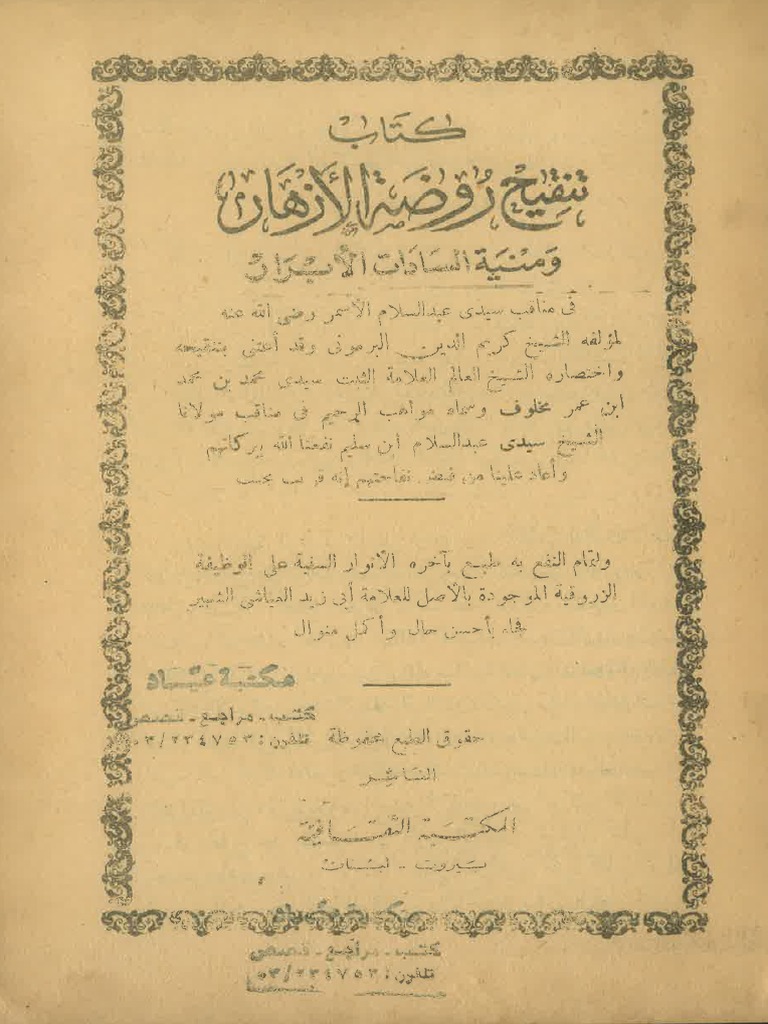 كتاب
تنقيح روضة الأزهار
ومنية السادات الأبرار
في مناقب سيدى عبدالسلام الأسمر رضى الله عنه
لمؤلفه الشيخ كريم الدين البرمونى وقد أعتنى بتنقيحه
واختصاره الشيخ العالم العلامة الثبت سيدى محمد بن محمد
ابن عمر مخلوف وسماه مواهب الرحيم فى مناقب مولانا
الشيخ سيدى عبدالسلام ابن سليم نفعنا الله ببركاتهم
وأعاد علينا من نفحاتهم إنه
ولتمام النفع به طبع بآخره الأنوار السنية على الوظيفة
الزروقية الموجودة بالأصل للعلامة أبى زيد العياشى الشهير
فجاء بأحسن حال وأكمل منوال
مكتبة عباد
كتب - مراجع - قصص
حقوق الطبع محفوظة تلفون: ٠٣/٢٣٤٧٥٣
الناشر
المكتبة الثقافية
بيروت - لبنان
كتب - مراجع - قصص
تلفون: ٠٣/٢٣٤٧٥٣